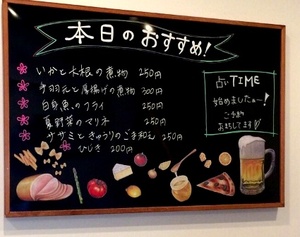 本日のおすすめ!
いかと大根の煮物 250円
手羽元と厚揚げの煮物 300円
白身魚のフライ 250円
夏野菜のマリネ 250円
ササミときゅうりのごま和え 250円
ひじき 200円
占いTIME
始めましたぁー!
ご予約
お待ちしてます